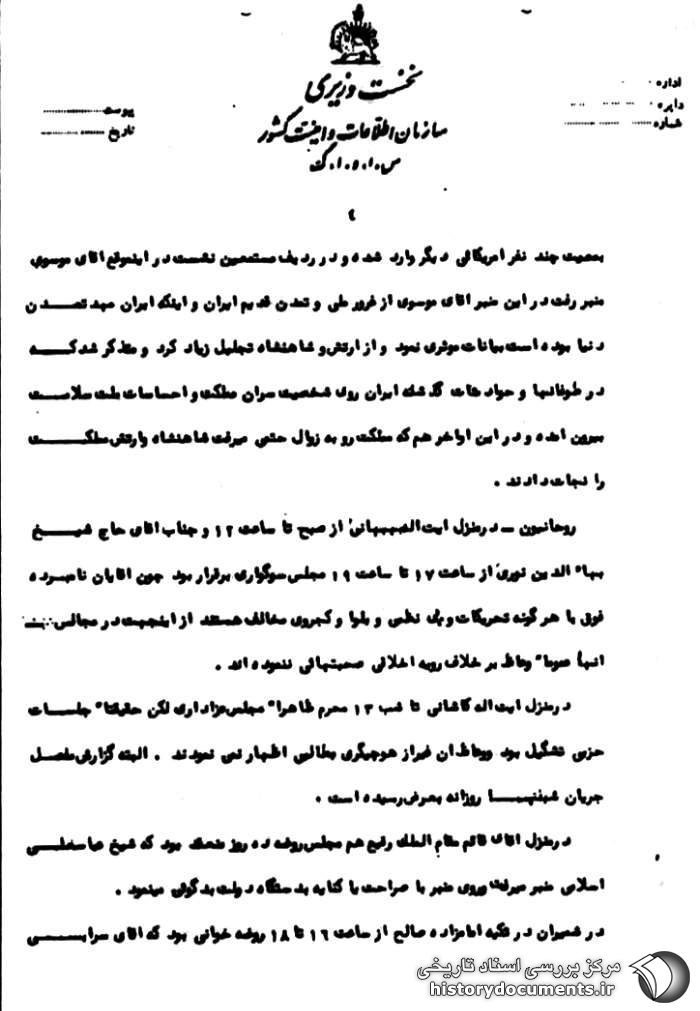 نخست وزیری
سازمان اطلاعات و امنیت کشور
س.ا.و.ا.ک
اداره
دایره
شماره
پیوست
تاریخ
بمعیت چند نفر امریکائی دیگر وارد شده و در ردیف مستمعین نشست در اینموقع اقای موسوی
منبر رفت در این منبر اقای موسوی از غرور ملی و تمدن قدیم ایران و اینکه ایران مهد تمدن
دنیا بوده است بیانات موثری نمود و از ارتش و شاهنشاه تجلیل زیاد کرد و متذکر شد که
در طوفانها و حوادثات گذشته ایران روی شخصیت سران مملکت و احساسات ملت سلامت
بیرون امده و در این اواخر هم که مملکت رو به زوال حتمی میرفت شاهنشاه وارتش مملکت
را نجات دادند .
روحانیون - درمنزل ایت اله بهبهانی از صبح تا ساعت ۱۲ و جناب اقای حاج شیخ
بهاء الدین نوری از ساعت ۱۷ تا ساعت ۱۹ مجلس سوگواری برقرار بود چون اقایان نامبرده
فوق با هر گونه تحریکات و بی نظمی و بلوا و کجروی مخالف هستند از اینجهت در مجالس
انها عموما" وعاظ بر خلاف رویه اخلاقی صحبتهائی ننموده اند .
درمنزل ایت اله کاشانی تا شب ۱۳ محرم ظاهرا" مجلس عزاداری لکن حقیقتا" جلسات
حزبی تشکیل بود ووعاظ ان غیراز هوچیگری مطالبی اظهار نمی نمودند . البته گزارش مفصل
جریان شبانه روزانه بعرض رسیده است .
درمنزل اقای قائم مقام الملک رفیع هم مجلس روضه ده روز منعقد بود که شیخ عباسعلی
اسلامی منبر میرفت وروی منبر با صراحت یا کنایه بدستگاه دولت بدگوئی مینمود .
در شمیران در تکیه امامزاده صالح از ساعت ۱۶ تا ۱۸ روضه خوانی بود که اقای سرابی
مرکز بررسی اسناد تاریخی
historydocuments.ir